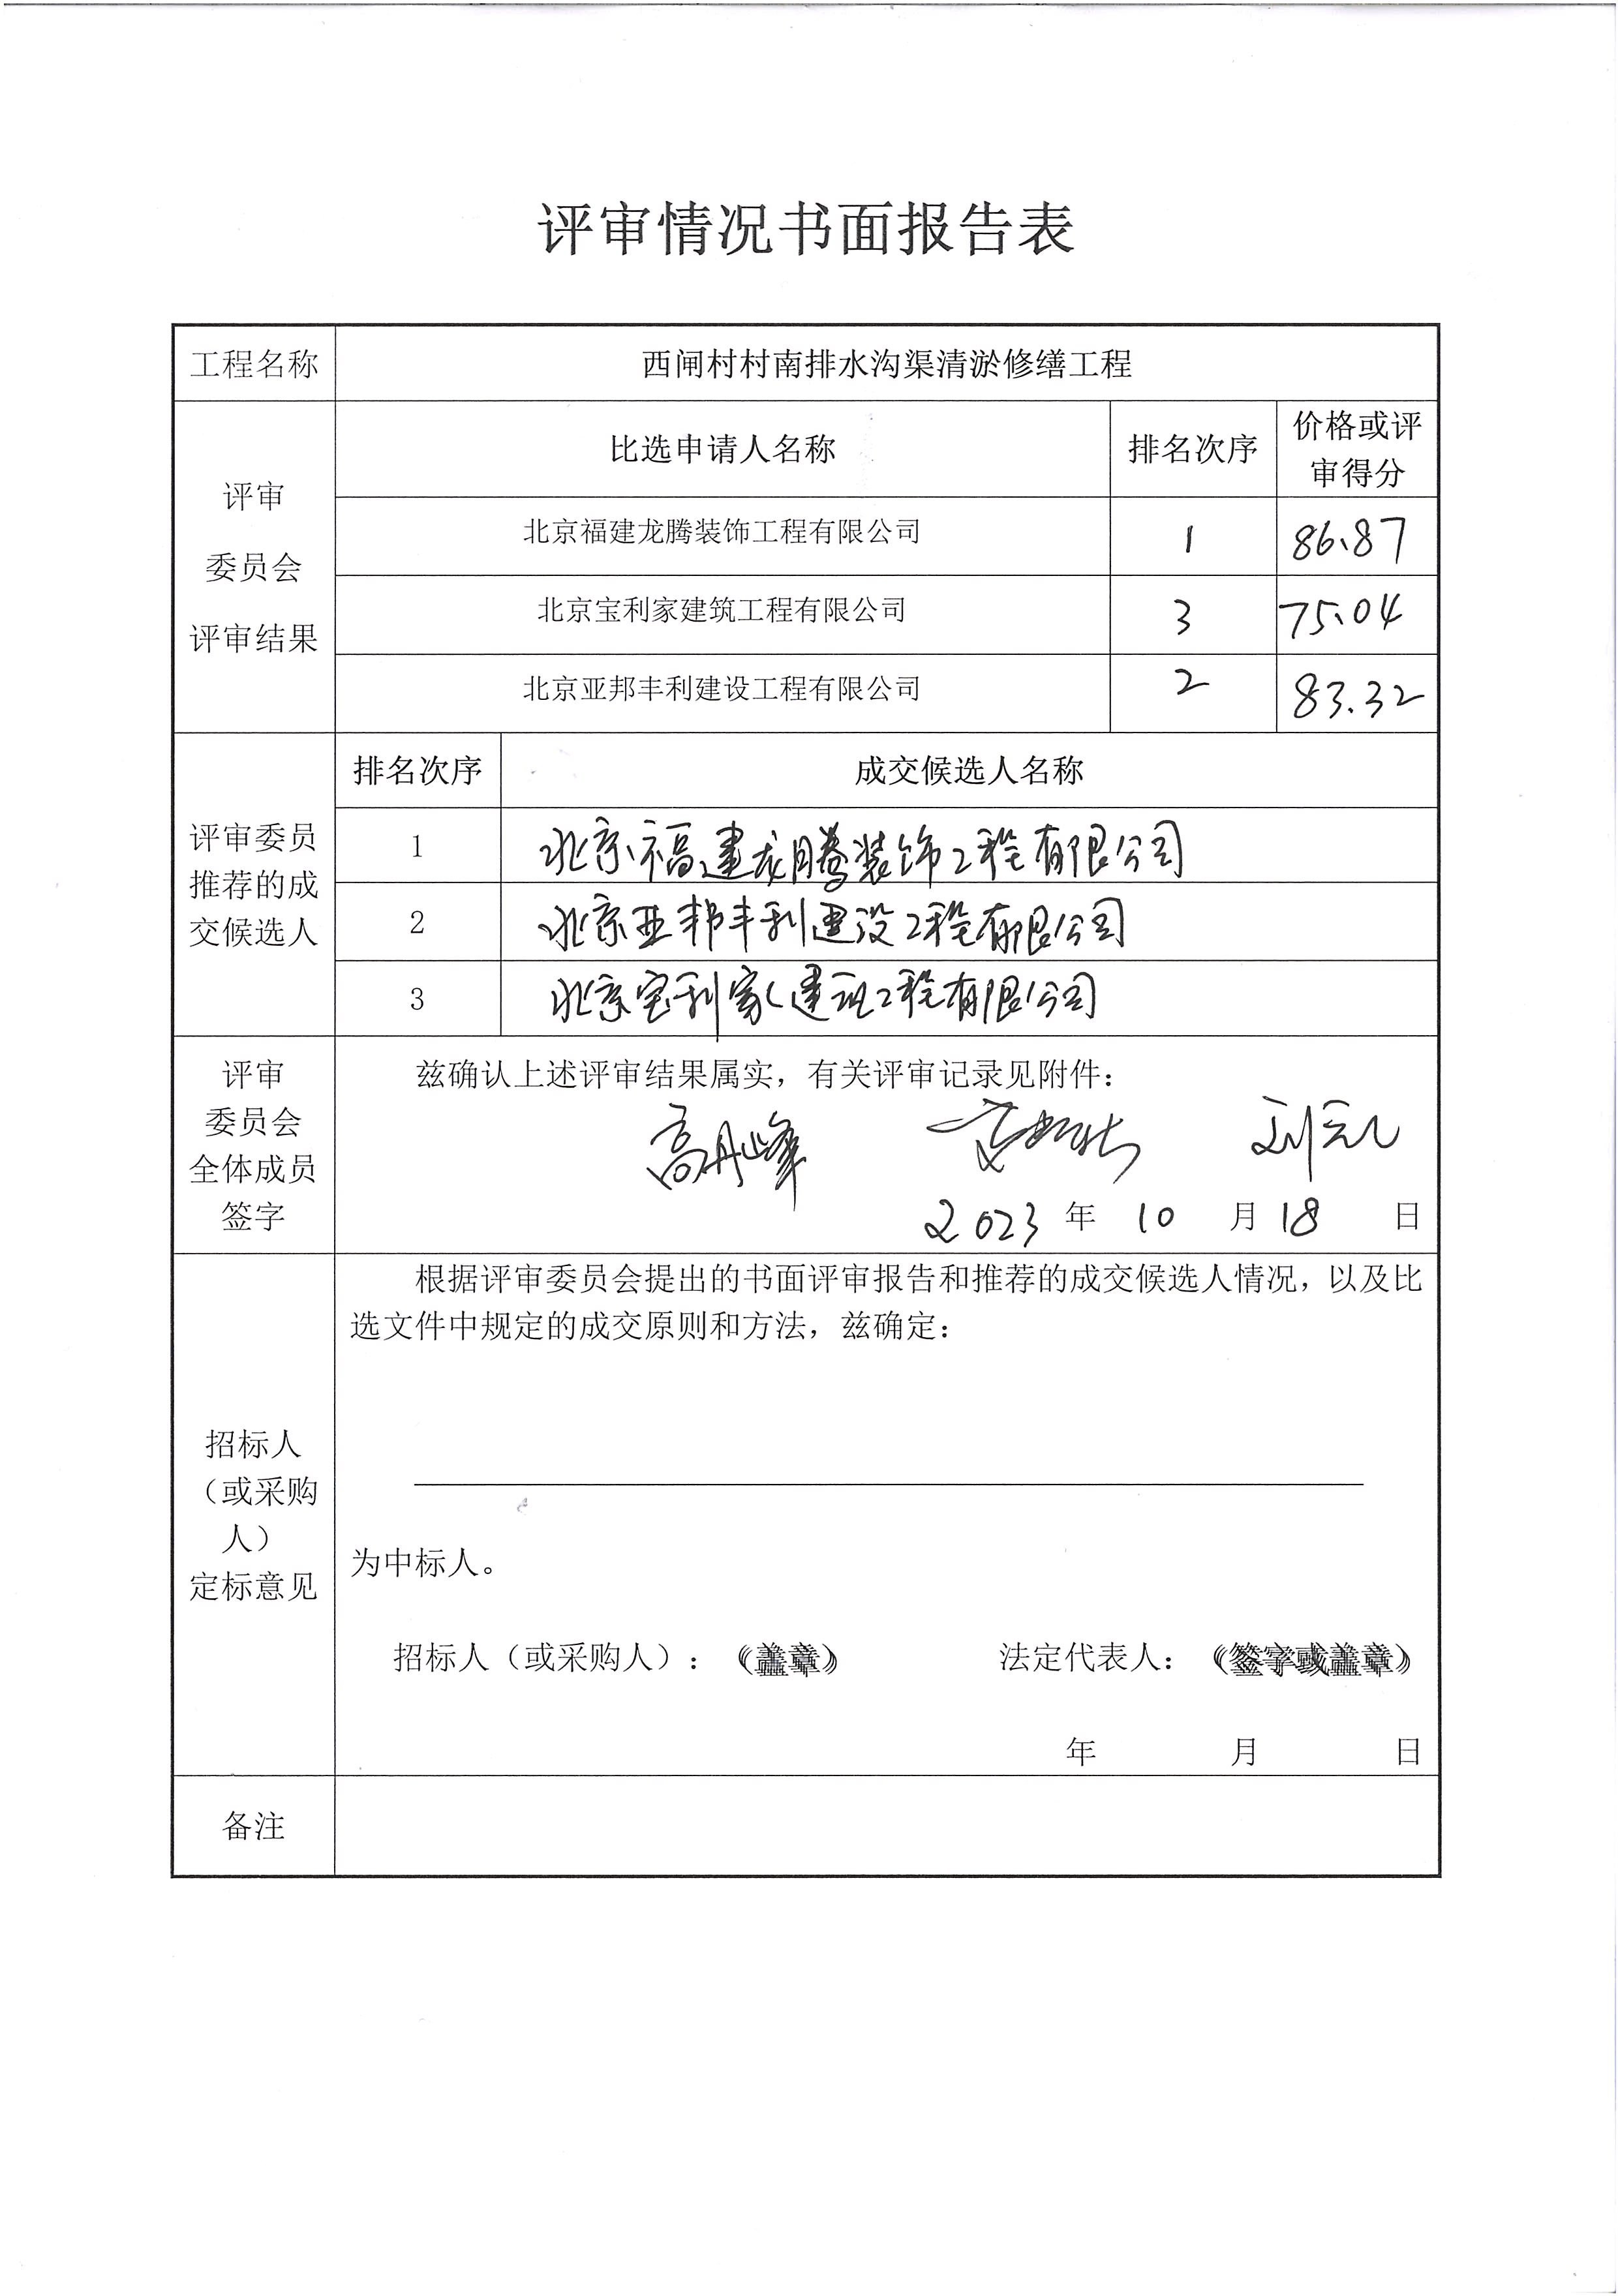 评审情况书面报告表
工程名称 西闸村村南排水沟渠清淤修缮工程
评审
委员会
评审结果
比选申请人名称 排名次序 价格或评
审得分
北京福建龙腾装饰工程有限公司 1 86.87
北京宝利家建筑工程有限公司 3 75.04
北京亚邦丰利建设工程有限公司 2 83.32
评审委员
推荐的成
交候选人
排名次序 成交候选人名称
1 北京福建龙腾装饰工程有限公司
2 北京亚邦丰利建设工程有限公司
3 北京宝利家建筑工程有限公司
评审
委员会
全体成员
签字
兹确认上述评审结果属实，有关评审记录见附件：
高丹峰
2023 年 10 月 18 日
招标人
（或采购
人）
定标意见
根据评审委员会提出的书面评审报告和推荐的成交候选人情况，以及比
选文件中规定的成交原则和方法，兹确定：
为中标人。
招标人（或采购人）：（盖章） 法定代表人：（签字或盖章）
年 月 日
备注